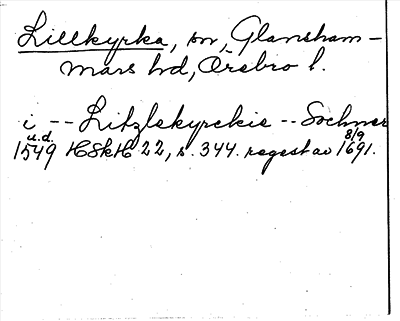 Lillkyrka, sn, Glansham-
mars hd, Örebro l.
i -- Litzlekyrckie -- Sochner
u.d. 8/9
1549 HSkH 22, s. 344. regest av 1691.